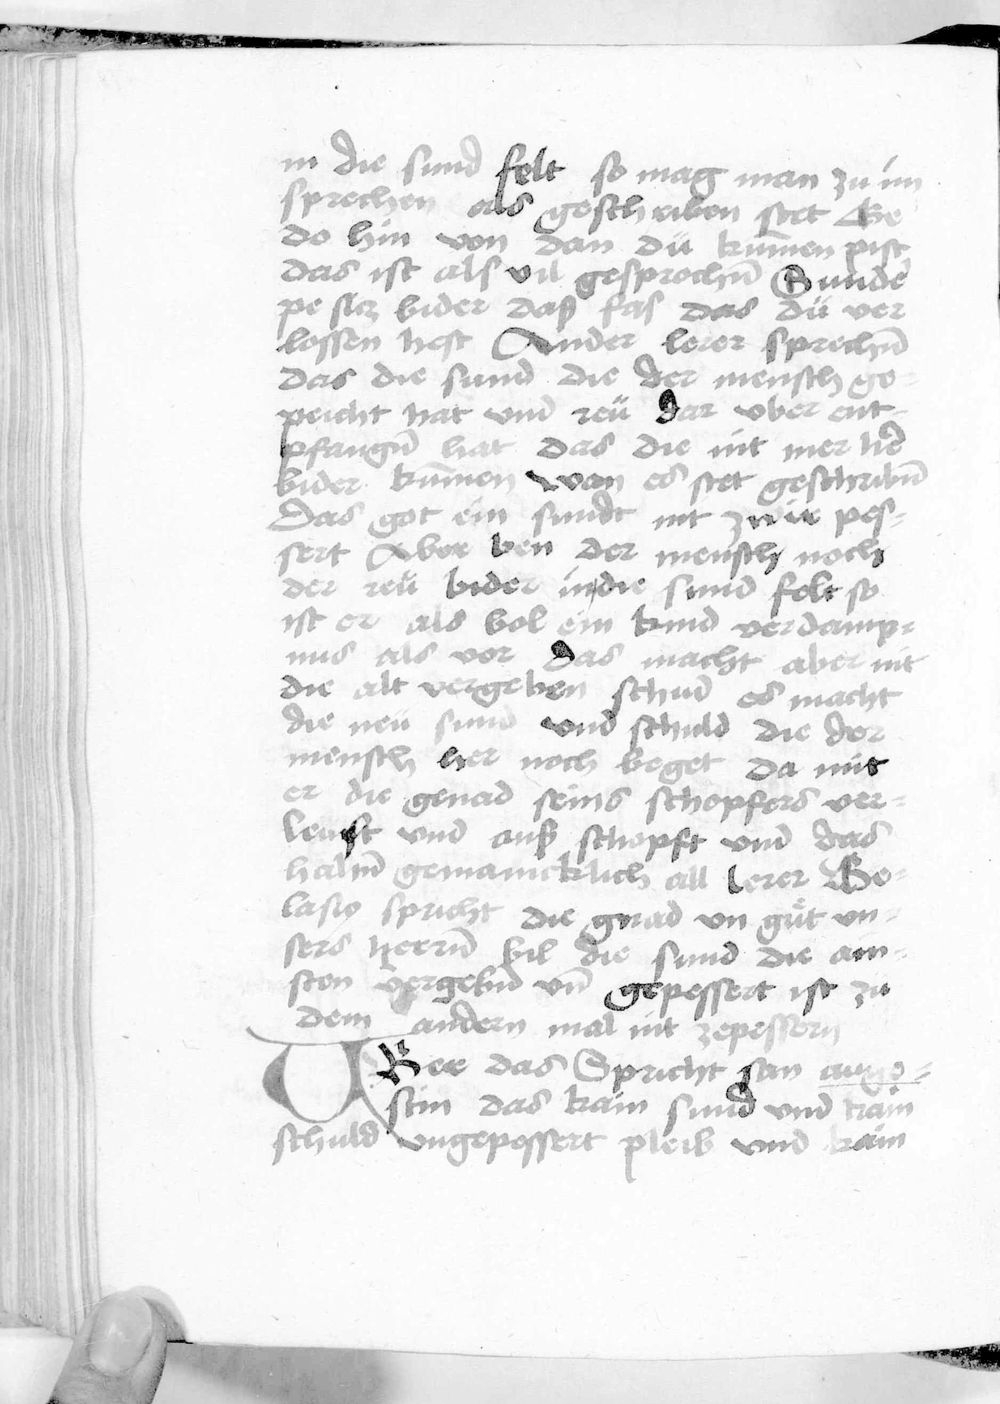 in die sund felt so mag man zu im
sprechen als geschriben stet Ge
do hin von dan dü kum̄en pist
das ist als vil gesprochn̄ Sunde
pesicz bider daß fas das dü ver
lossen hest Ander lerer sprechn̄
das die sund die der mensch ge-
peicht hat vnd reü dar vber ent-
pfangn̄ hat das die nit mer her
bider kum̄en wan es stet geschribn̄
Das got ein sundt nit zwir pes-
sert Aber ben der mensch noch
der reü bider in die sund felt so
ist er als bol ein kind verdamp-
nus als vor das macht aber nit
die alt vergeben schud es macht
die neü sund vnd schuld die der
mensch her noch beget da mit
er die genad seins schopfers ver-
leust vnd auß schopft vnd das
haltn̄ gemainicklich all lerer Ge-
lasio spricht die gnad vn gut vn-
sers herrn̄ bil die sund die ain-
sten vergebn̄ vn̄ gepessert ist zü
dem andern mal nit zepessern
Ber das Spricht san auge-
stin das kain sund vnd kain
schuld vngepessert pleib vnd kain